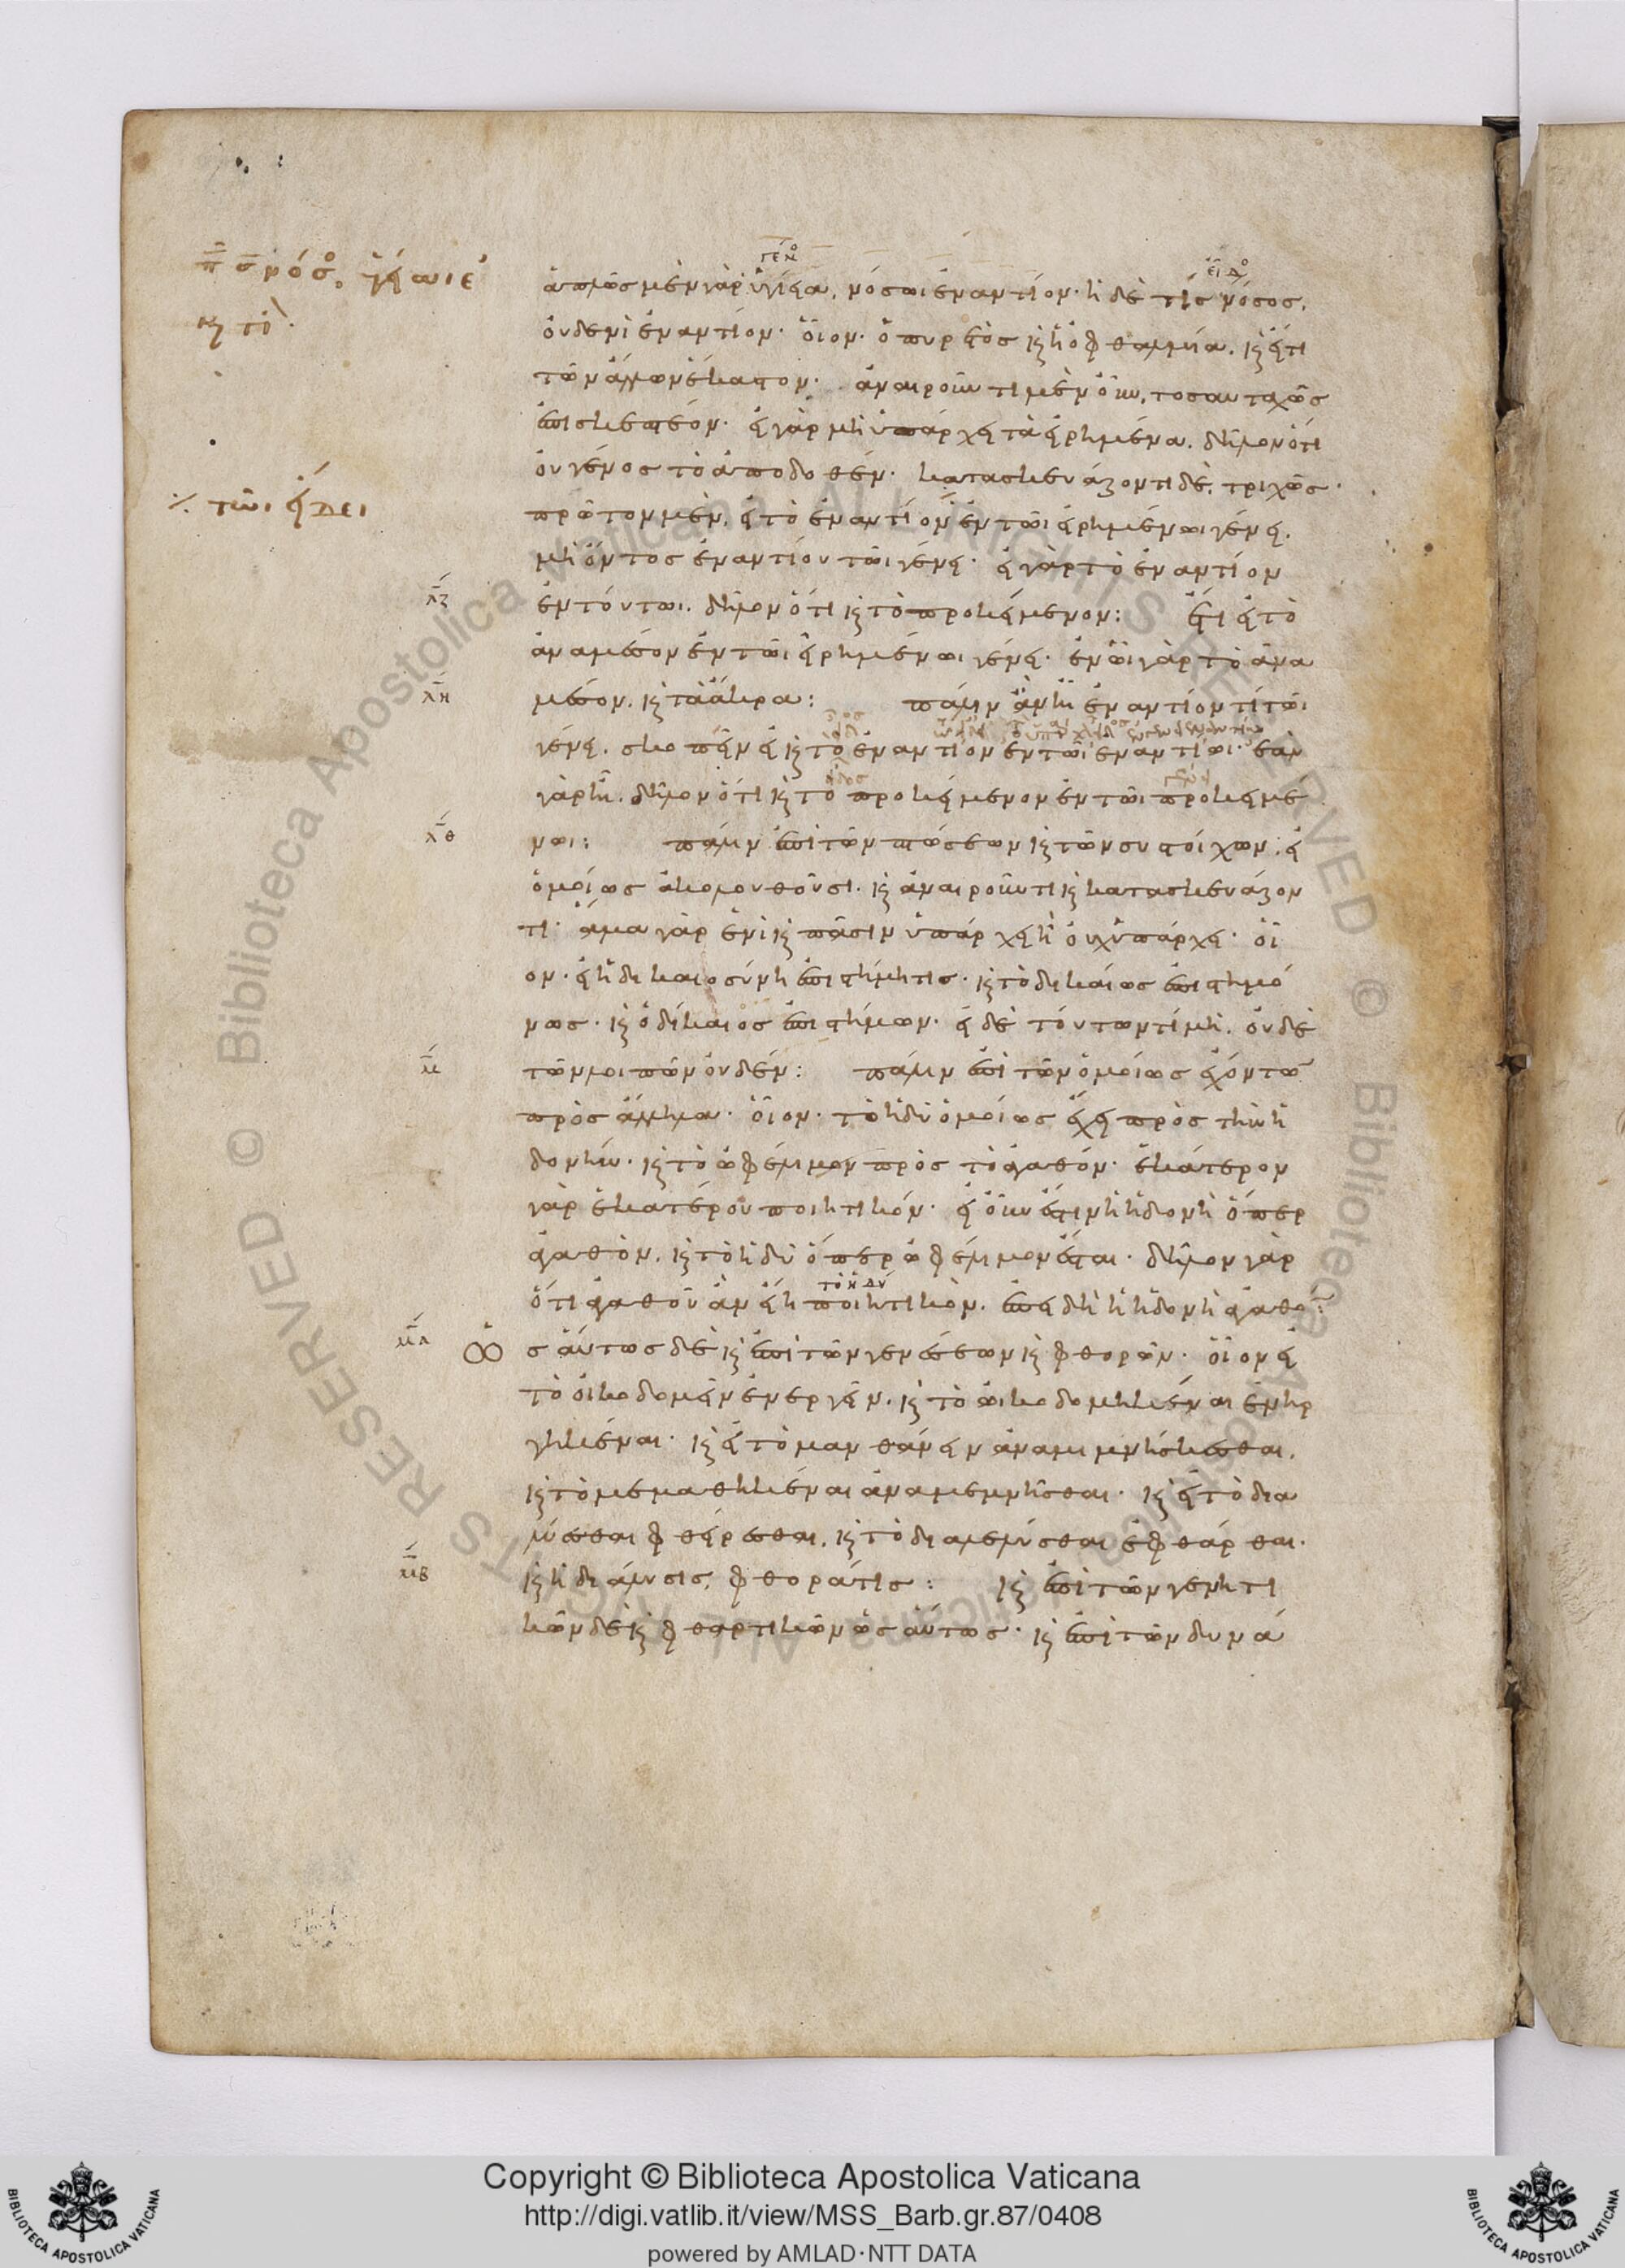 ἁπλῶς μὲν γὰρ ὑγίεια, νόσωι ἐναντίον· ἡ δὲ τίς νόσος,
οὐδενὶ ἐναντίον· οἷον· ὁ πυρετὸς καὶ ἡ ὀφθαλμία, καὶ ἔτι
τῶν ἄλλων ἕκαστον· ἀναιροῦντι μὲν οὖν, τοσαυταχῶς
ἐπισκεπτέον· εἰ γὰρ μὴ ὑπάρχει τὰ εἰρημένα, δῆλον ὅτι
οὐ γένος τὸ ἀποδοθέν· κατασκευάζοντι δὲ, τριχῶς·
πρῶτον μὲν, εἰ τὸ ἐναντίον ἐν τῶι εἰρημένωι γένει,
μὴ ὄντος ἐναντίου τῶι γένει· εἰ γὰρ τὸ ἐναντίον
λζ
ἐν τούτωι, δῆλον ὅτι καὶ τὸ προκείμενον: ἔτι εἰ τὸ
ἀναμέσον ἐν τῶι εἰρημένωι γένει· ἐν ὧι γὰρ τὸ ἀνα
λη
μέσον, καὶ τὰ ἄκρα: πάλιν ἂν ἦι ἐναντίον τί τῶι
γένει, σκοπεῖν εἰ καὶ τὸ ἐναντίον ἐν τῶι ἐναντίωι· ἐὰν
γὰρ ἦι, δῆλον ὅτι καὶ τὸ προκείμενον ἐν τῶι προκειμέ
λθ
νωι: πάλιν ἐπὶ τῶν πτώσεων καὶ τῶν συστοίχων, εἰ
ὁμοίως ἀκολουθοῦσι, καὶ ἀναιροῦντι καὶ κατασκευάζον
τι· ἅμα γὰρ ἑνὶ καὶ πᾶσιν ὑπάρχει ἢ οὐχ ὑπάρχει· οἷ
ον· εἰ ἡ δικαιοσύνη ἐπιστήμη τις· καὶ τὸ δικαίως ἐπιστημό
νως· καὶ ὁ δίκαιος ἐπιστήμων· εἰ δὲ τούτων τί μὴ, οὐδὲ
μ
τῶν λοιπῶν οὐδέν: πάλιν ἐπὶ τῶν ὁμοίως ἐχόντων
πρὸς ἄλληλα· οἷον· τὸ ἡδὺ ὁμοίως ἔχει πρὸς τὴν ἡ
δονήν· καὶ τὸ ὠφέλιμον πρὸς τὸ ἀγαθόν· ἑκάτερον
γὰρ ἑκατέρου ποιητικόν· εἰ οὖν ἐστιν ἡ ἡδονὴ ὅπερ
ἀγαθὸν, καὶ τὸ ἡδὺ ὅπερ ὠφέλιμον ἔσται· δῆλον γὰρ
τὸ ἡδύ
ὅτι ἀγαθοῦ ἂν εἴη ποιητικὸν, ἐπειδὴ ἡ ἡδονὴ ἀγαθόν:
μα
ὡσαύτως δὲ καὶ ἐπὶ τῶν γενέσεων καὶ φθορῶν· οἷον εἰ
τὸ οἰκοδομεῖν ἐνεργεῖν, καὶ τὸ ὠικοδομηκέναι ἐνηρ
γηκέναι· καὶ εἰ τὸ μανθάνειν ἀναμιμνήσκεσθαι,
καὶ τὸ μεμαθηκέναι ἀναμεμνῆσθαι· καὶ εἰ τὸ δια
λύεσθαι φθείρεσθαι, καὶ τὸ διαλελύσθαι ἐφθάρθαι,
μβ
καὶ ἡ διάλυσις, φθορά τις: καὶ ἐπὶ τῶν γενητι
κῶν δὲ καὶ φθαρτικῶν ὡσαύτως· καὶ ἐπὶ τῶν δυνά
Copyright © Biblioteca Apostolica Vaticana
http://digi.vatlib.it/view/MSS_Barb.gr.87/0408
powered by AMLAD·NTT DATA